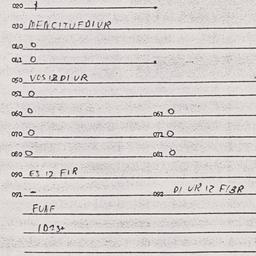 020 1
030 MENCITUFDIUR
040 0
041 0
050 VOSIBDIUR
051 0
060 0 061 0
070 0 071 0
080 0 081 0
090 ES 12 FIR
091 - 092 DI UR 12 FIBR
FUAF